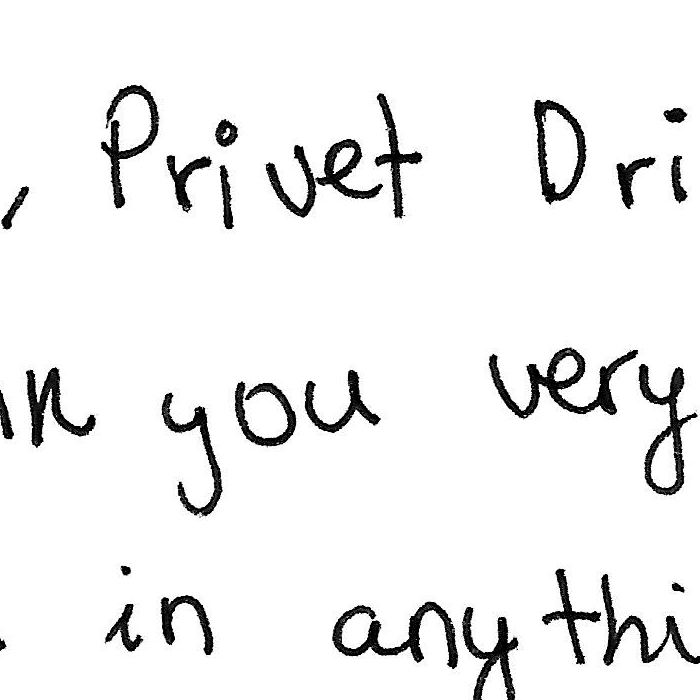 , Privet Dri
nk you very
in anythi